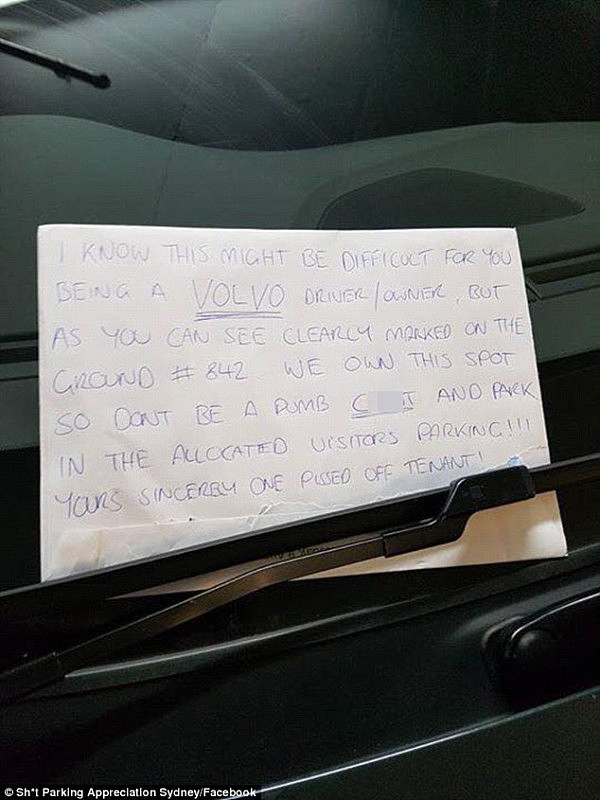 I KNOW THIS MIGHT BE DIFFICULT FOR YOU
BEING A VOLVO DRIVER/OWNER, BUT
AS YOU CAN SEE CLEARLY MARKED ON THE
GROUND # 842 WE OWN THIS SPOT
SO DONT BE A DUMB C T AND PARK
IN THE ALLOCATED VISITORS PARKING!!!
YOURS SINCERELY ONE PISSED OFF TENANT!
© Sh*t Parking Appreciation Sydney/Facebook